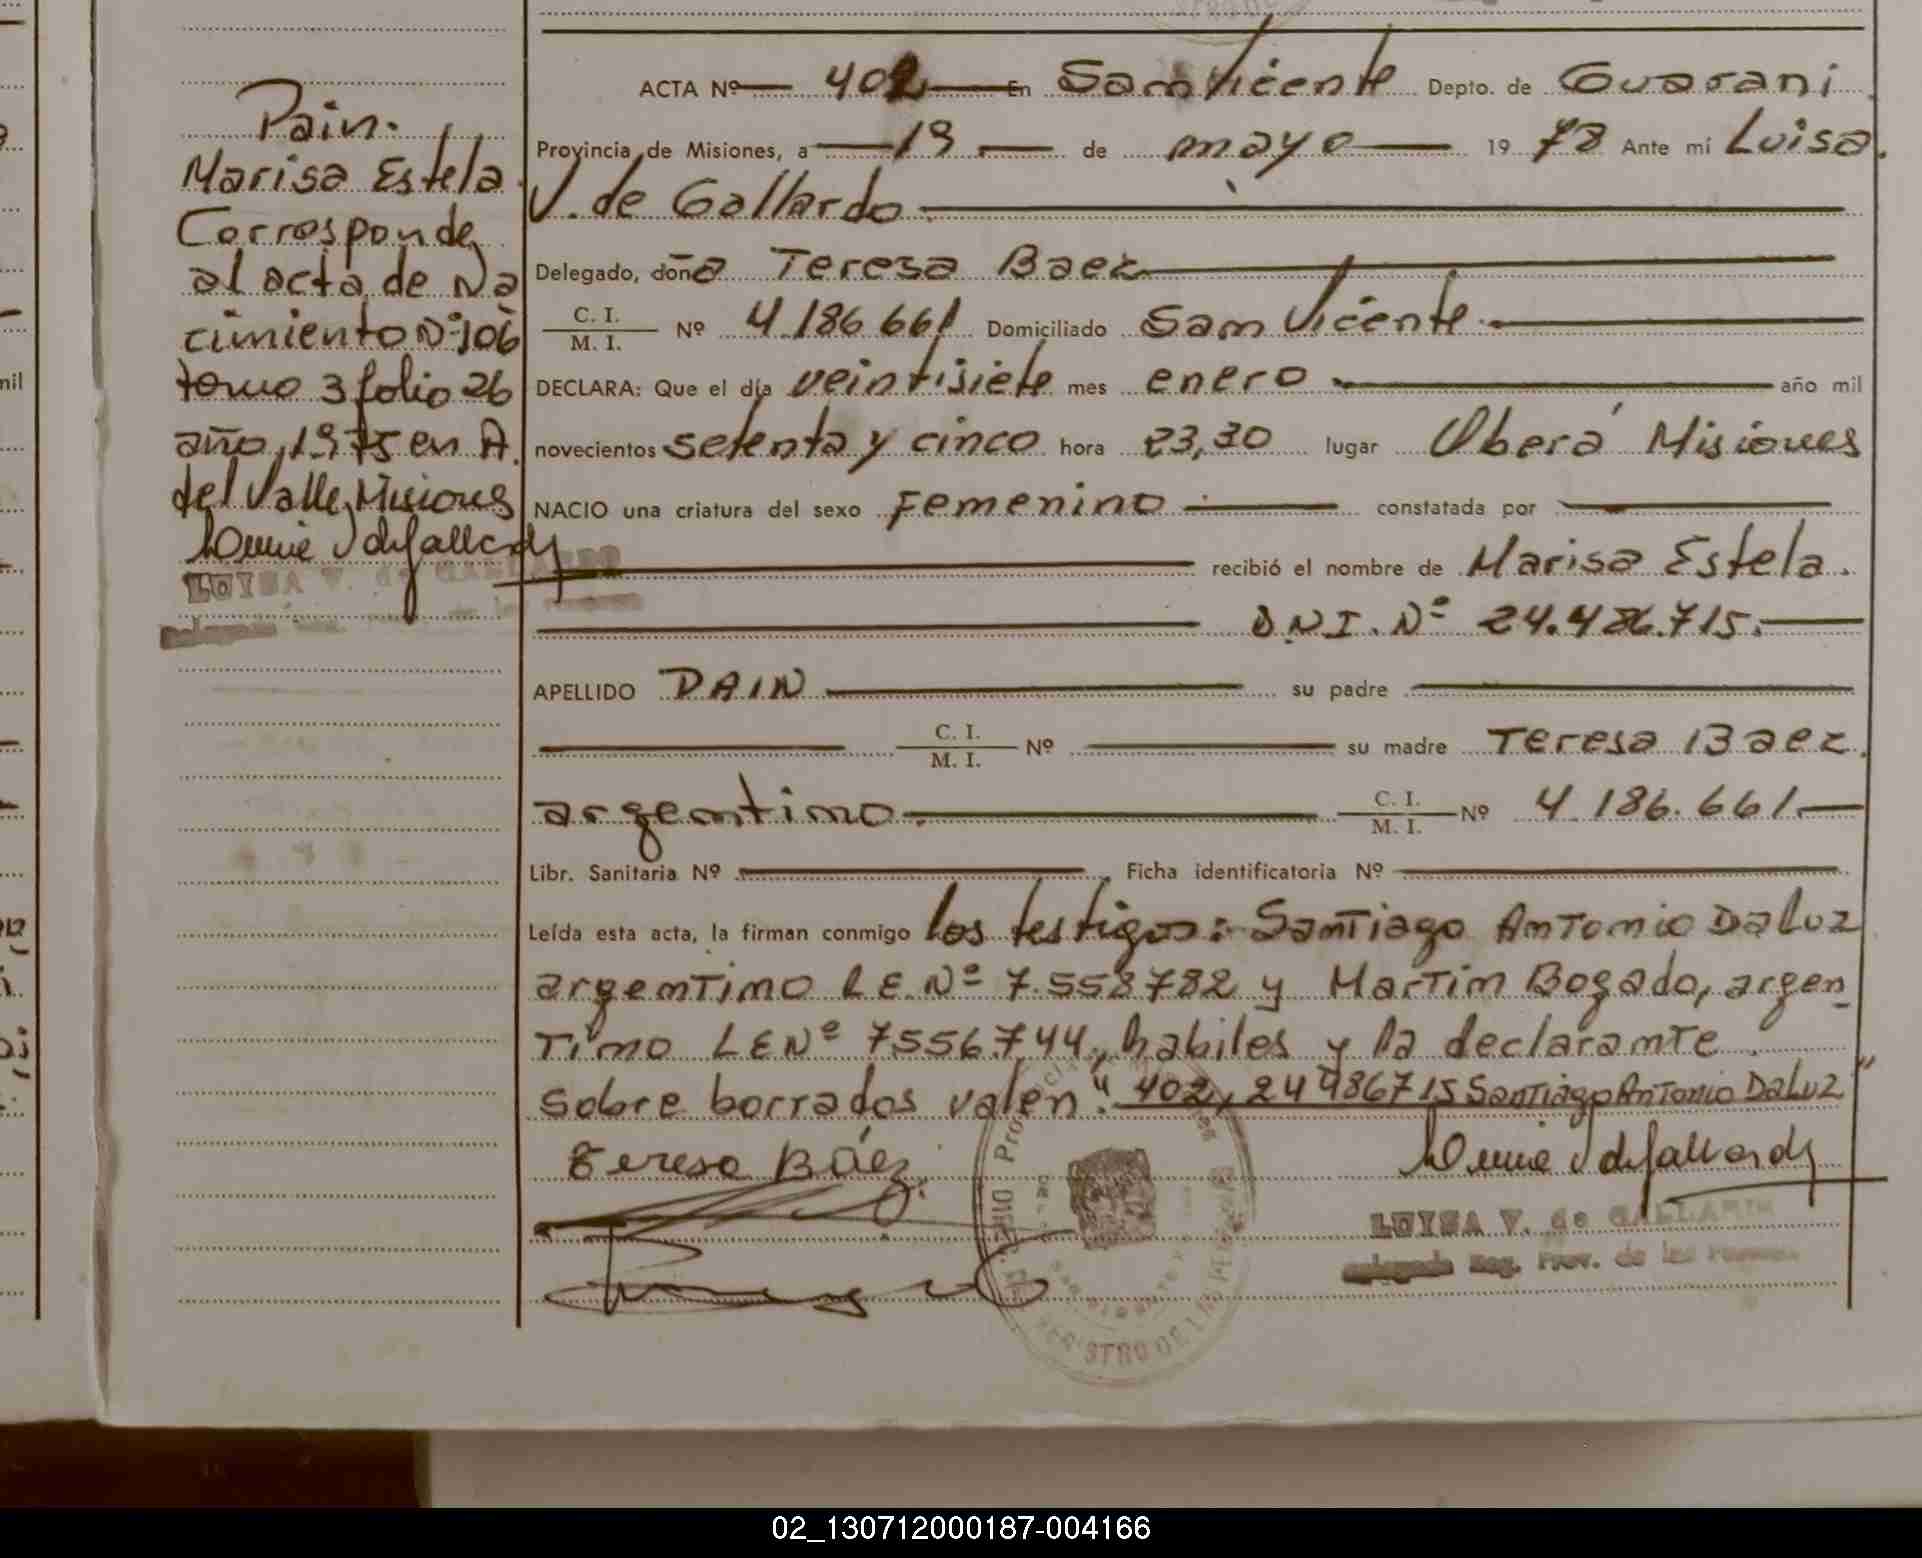 Pain.
Marisa Estela
Corresponde
al acta de Na
cimiento Nº 106
tomo 3 folio 26
año 1975 en A.
del Valle, Misiones
LUISA V. de GALLARDO
ACTA Nº 402 En San Vicente Depto. de Guarani
Provincia de Misiones, a 19 de mayo 1978 Ante mí Luisa
V. de Gallardo
Delegado, doña Teresa Baez
C. I. / M. I. Nº 4.186.661 Domiciliado San Vicente
DECLARA: Que el día veintisiete mes enero año mil
novecientos setenta y cinco hora 23,30 lugar Oberá Misiones
NACIO una criatura del sexo Femenino constatada por
recibió el nombre de Marisa Estela
D.N.I. Nº 24.486.715.
APELLIDO PAIN su padre
C. I. / M. I. Nº su madre Teresa Baez
argentino C. I. / M. I. Nº 4.186.661
Libr. Sanitaria Nº Ficha identificatoria Nº
Leída esta acta, la firman conmigo los testigos: Santiago Antonio Daluz
argentino L.E. Nº 7.558782 y Martin Bogado, argen
tino L E Nº 7556744, habiles y la declarante
sobre borrados valen: "402, 24486715 Santiago Antonio Daluz"
Teresa Báez
LUISA V. de GALLARDO
Delegada Reg. Prov. de las Personas
02_130712000187-004166